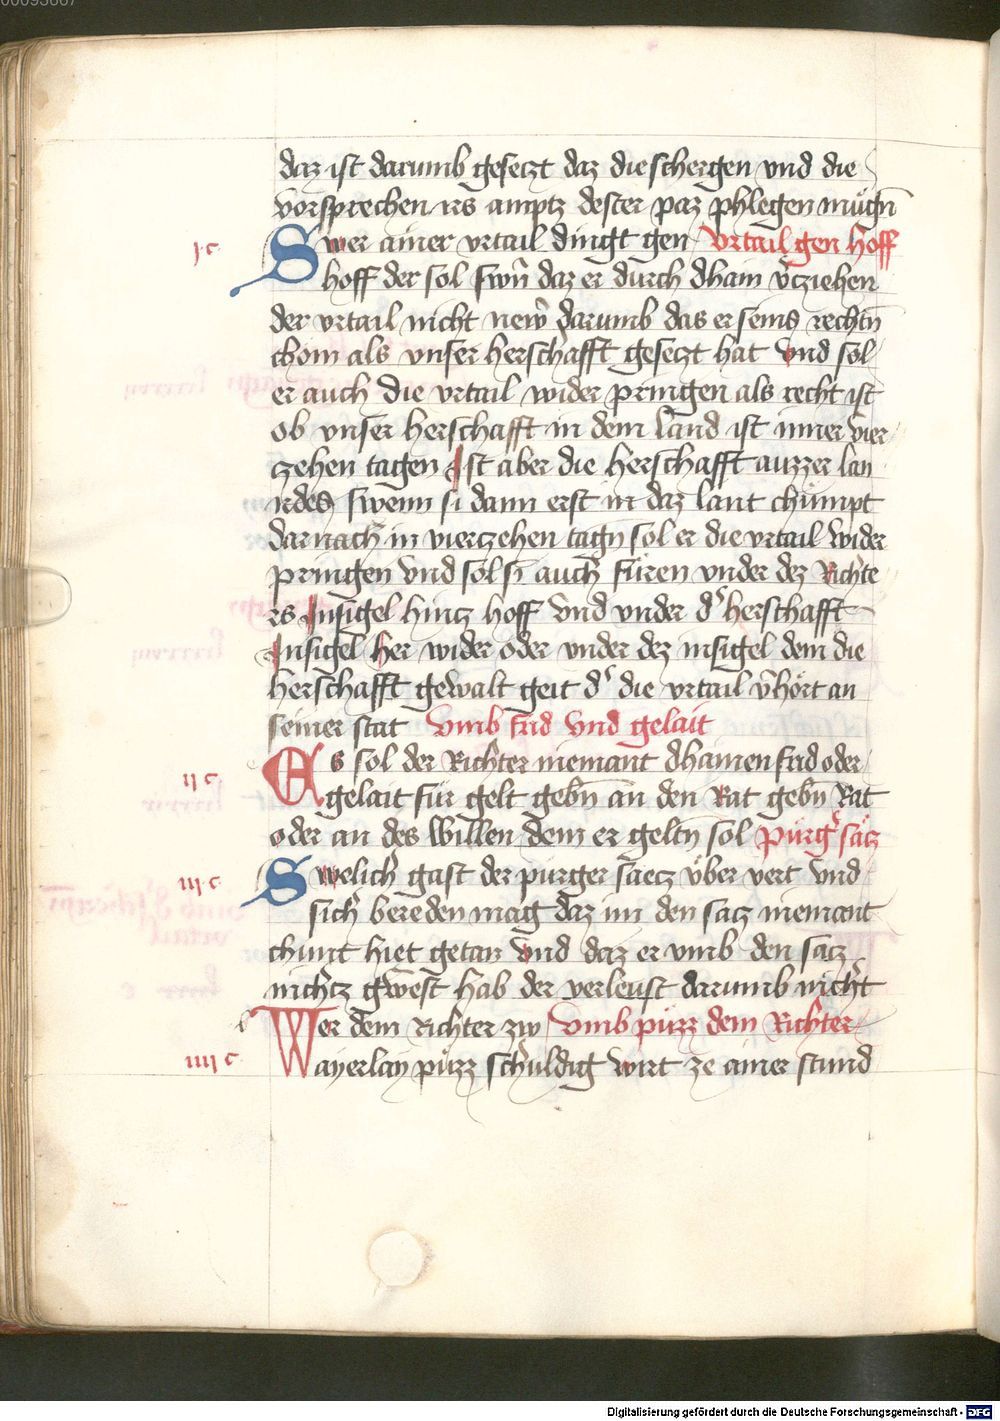 daz ist darumb gesetzt daz die schergen vnd die
vorsprechen irs amptz dester paz phlegen mügn̄
j c
Swer ainer vrtail dingt gen vrtail gen hoff
hoff der sol swn̄ daz er durch dhain v̓cziehen
der vrtail nicht new̄ darumb das er seins rechtn̄
chom als vnser herschafft gesetzt hat vnd sol
er auch die vrtail wider pringen als recht ist
ob vnser herschafft in dem land ist inner vier
czehen tagen Ist aber die herschafft auzzer lan
ndes swenn si dann erst in daz lant chümpt
darnach in vierczehen tagn̄ sol er die vrtail wider
pringen vnd sol si auch füren vnder dez Richte
rs Insigel hintz hoff vnd vnder d̓ herschafft
Insigel her wider oder vnder dez insigel dem die
herschafft gewalt geit d̓ die vrtail v̓hört an
seiner stat vmb frid vnd gelait
ij c
Es sol der Richter niemant dhainen frid oder
gelait für gelt gebn̄ an den Rat gebn̄ Rat
oder an des willen dem er geltn̄ sol purg̓ sätz
iij c
Swelich gast der purger säcz über vert vnd
sich bereden mag daz im den satz niemant
chunt hiet getan vnd daz er vmb den satz
nichtz gwest hab der verleust darumb nicht
w
Wer dem richter zw vmb püzz dem Richter
iiij c
ayerlay püzz schuldig wirt ze ainer stund
Digitalisierung gefördert durch die Deutsche Forschungsgemeinschaft - DFG